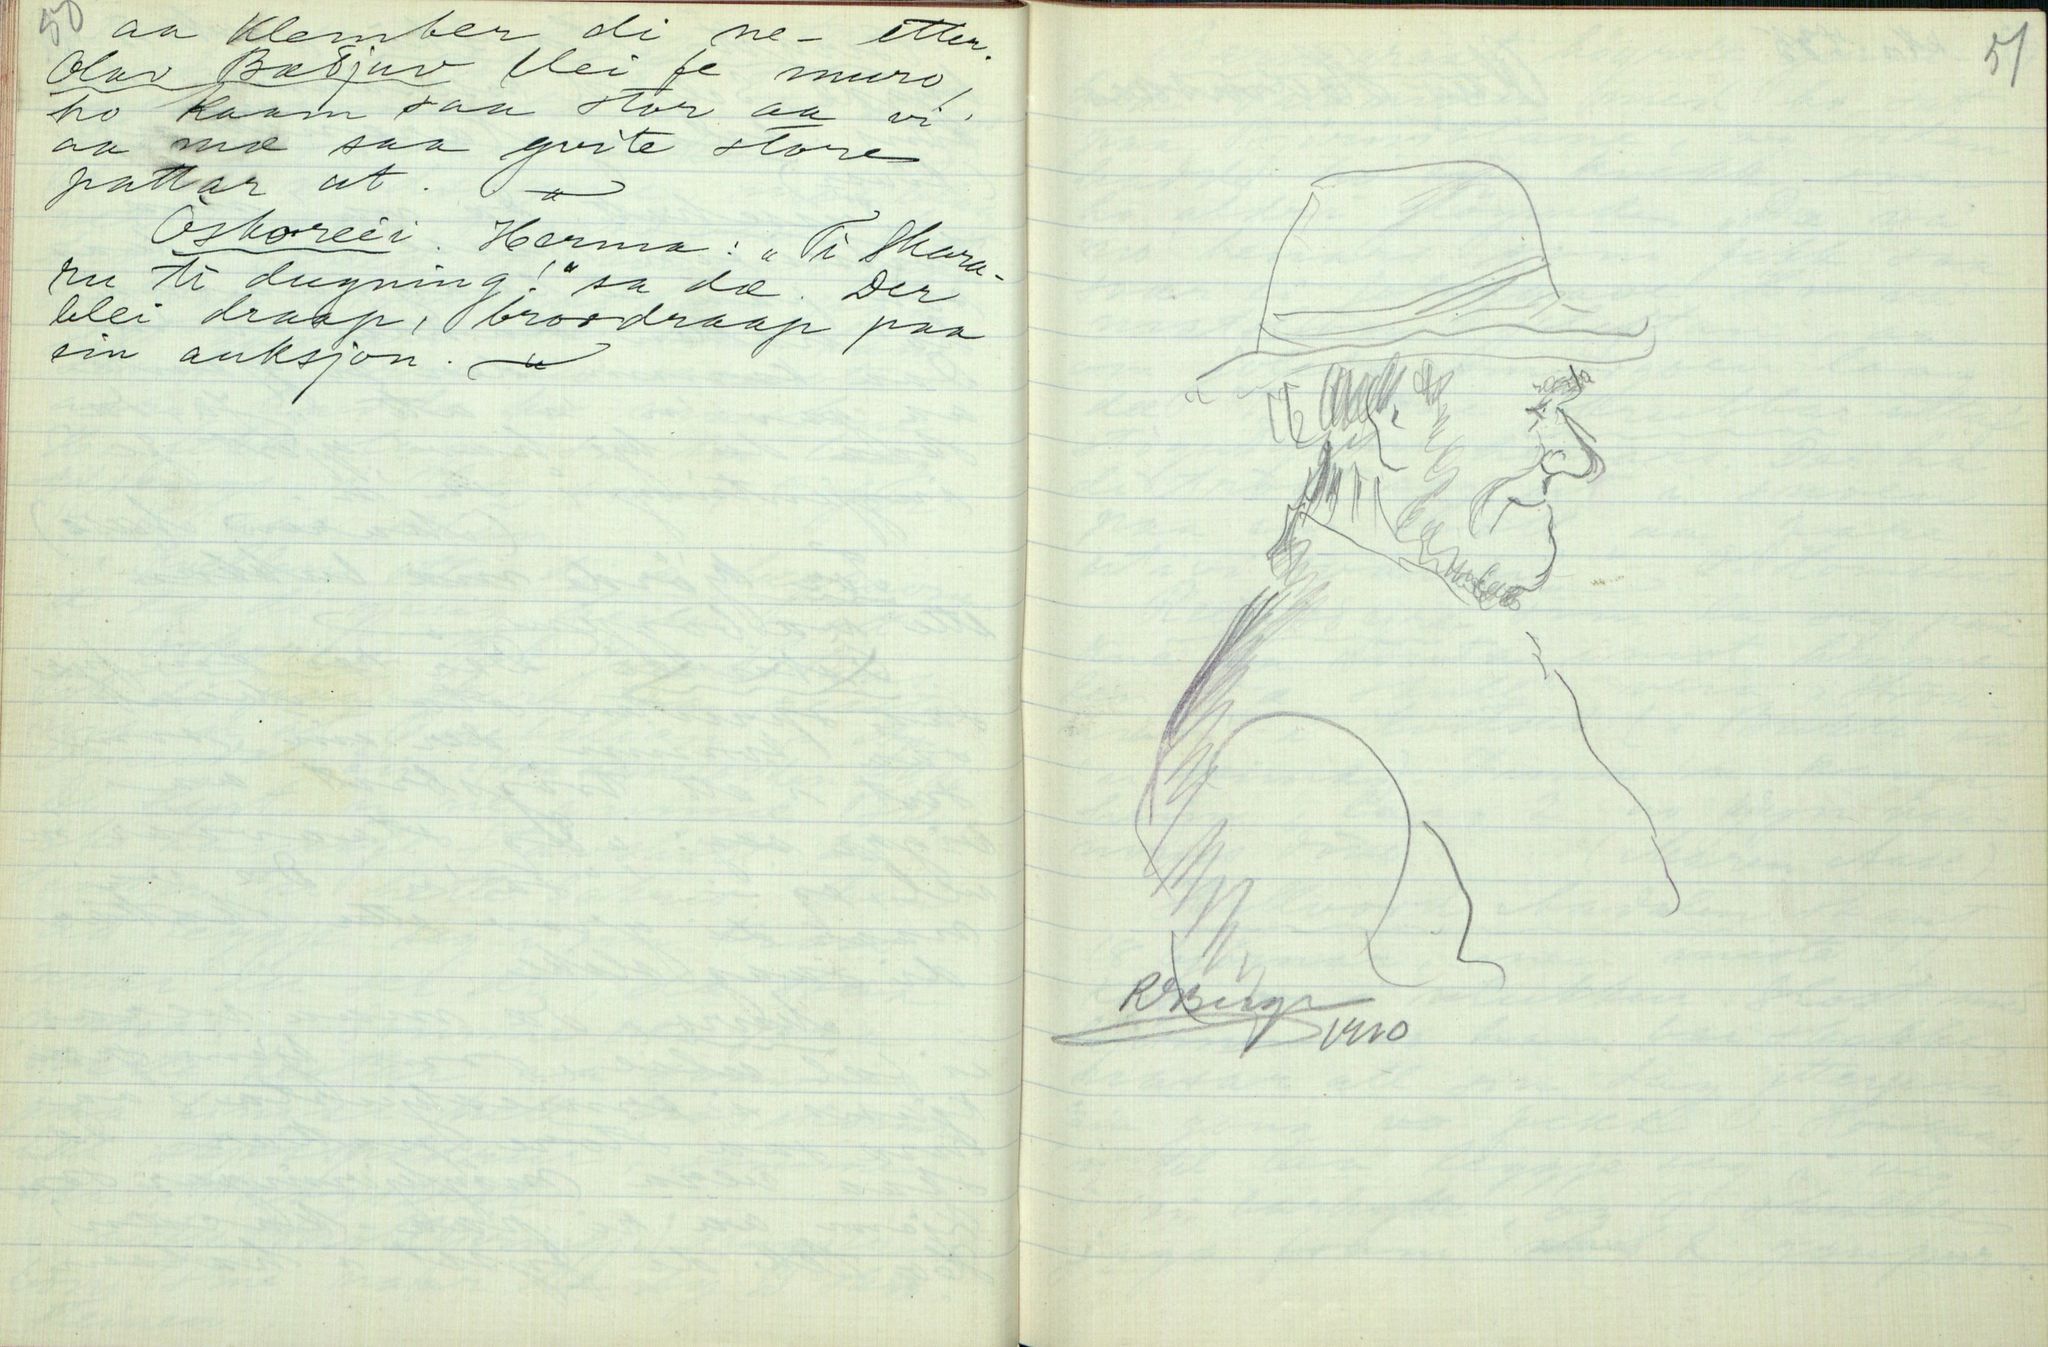 50
aa klember di ne- etter.
Olav Bæðjuv blei fe muro,
ho kaam saa stor aa vi'
aa mæ saa gvite store
pattar ut.
Oskoreii. Herma: "Ti Skara-
ru ti dugning!" sa dæ. Der
blei draap, broordraap paa
ein auksjon.
51
RBerge
1910